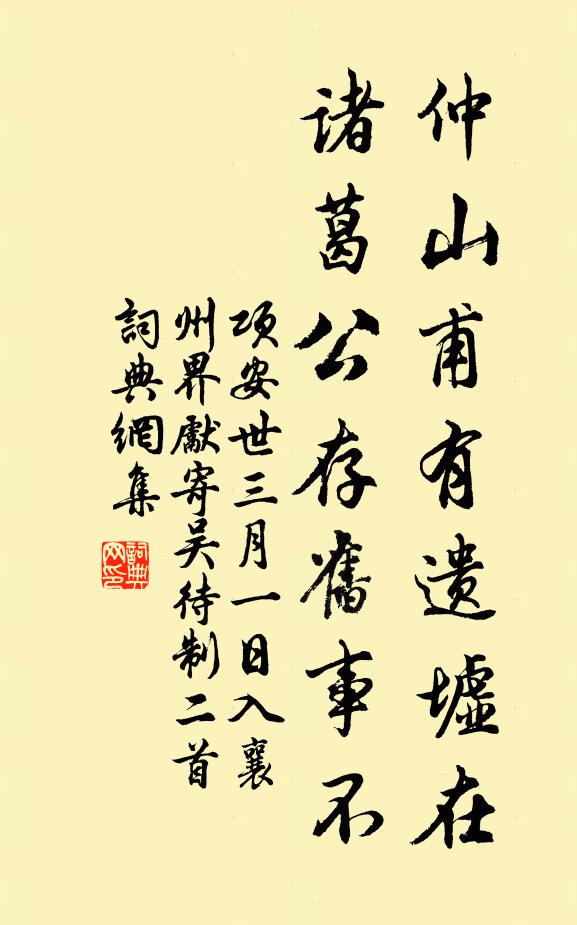 仲山甫有遗墟在
諸葛公存舊事不
项安世三月一日入襄
州界獻寄吴待制二首
詞典網集
詞典
网印